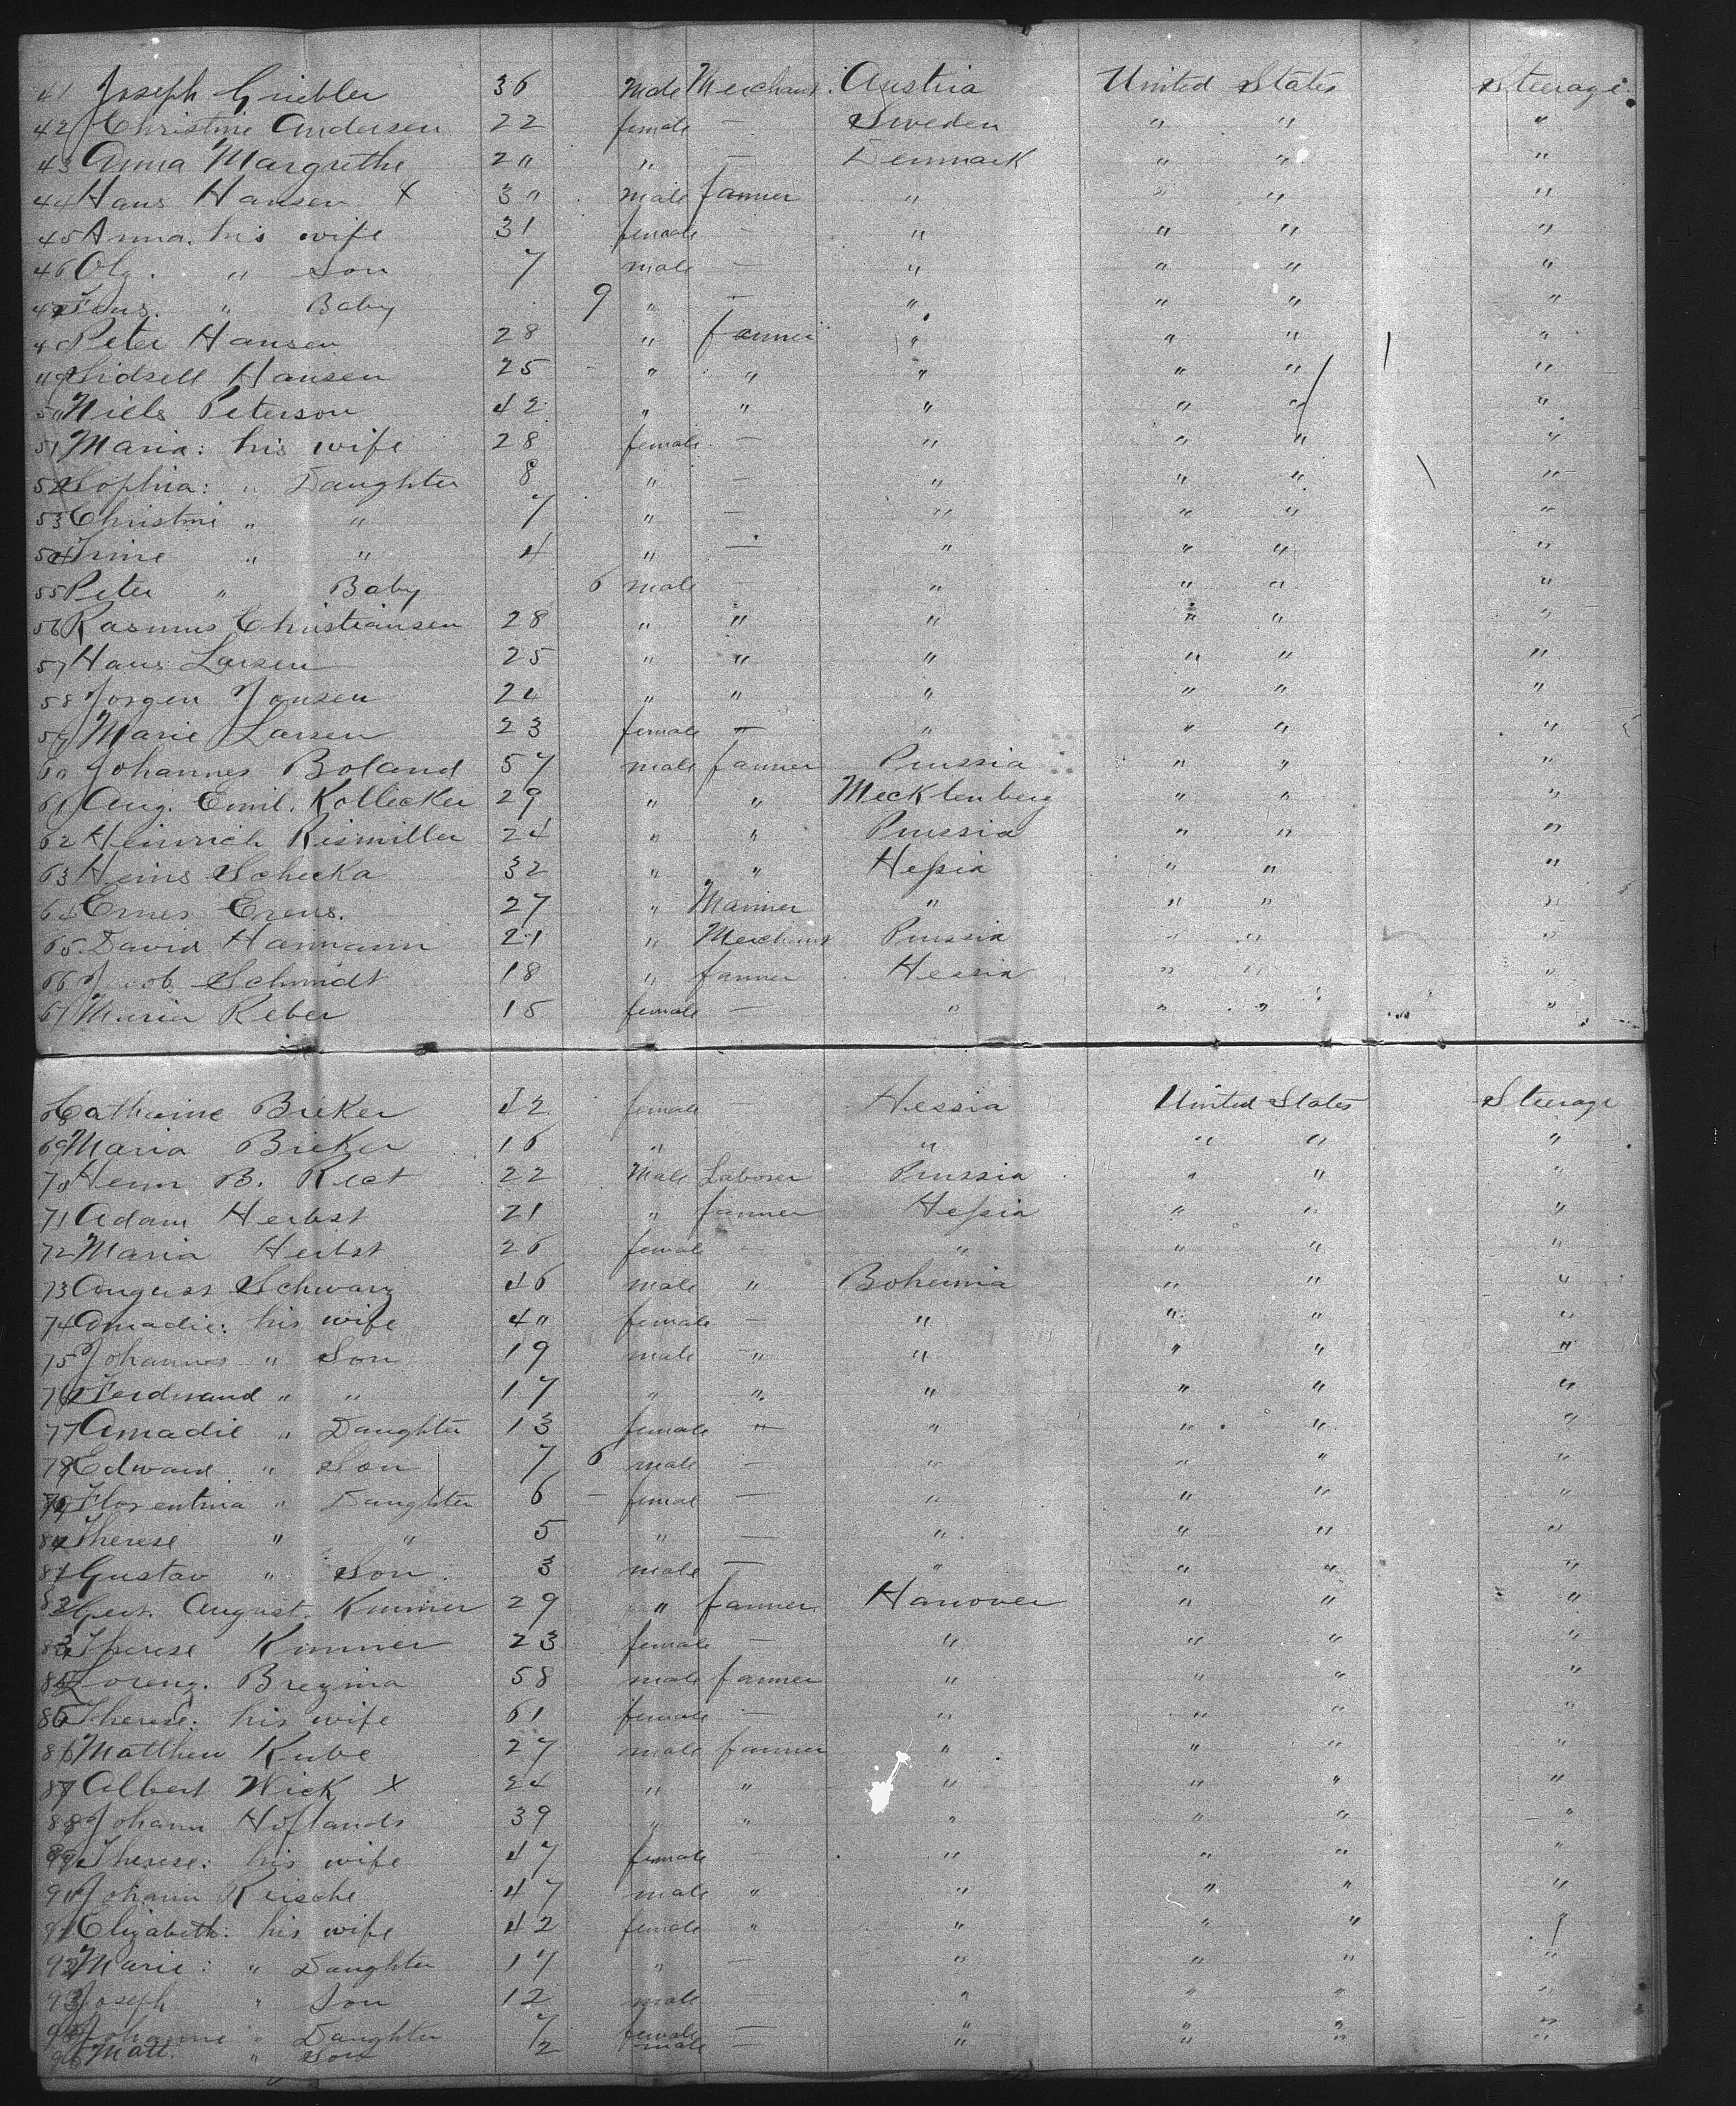 41 Joseph Griebler 36 Male Merchant. Austria United States Steerage.
42 Christine Andersen 22 female — Sweden " " "
43 Anna Margrethe 20 " — Denmark " " "
44 Hans Hansen X 30 male farmer " " " "
45 Anna. his wife 31 female — " " " "
46 " Son 7 male — " " " "
47 Jens. " Baby 9 " — " " " "
48 Peter Hansen 28 " farmer " " " "
49 Sidsell Hansen 25 " " " " " "
50 Niels Peterson 42 " " " " " "
51 Maria: his wife 28 female — " " " "
52 Sophia: " Daughter 8 " — " " " "
53 Christini " " 7 " — " " " "
54 Trine " " 4 " — " " " "
55 Peter " Baby 6 male — " " " "
56 Rasmus Christiansen 28 " " " " " "
57 Hans Larsen 25 " " " " " "
58 Jorgen Jansen 24 " " " " " "
59 Marie Larsen 23 female — " " " "
60 Johannes Boland 57 male farmer Prussia " " "
61 Aug. Emil. Kollecker 29 " " Mecklenberg " " "
62 Heinrich Rismiller 24 " " Prussia " " "
63 Heins Schecka 32 " " Hessia " " "
64 Ernes Erens. 27 " Mariner " " " "
65 David Hamann 21 " Merchant Prussia " " "
66 Jacob Schmidt 18 " farmer Hessia " " "
67 Maria Reber 15 female — " " " "
68 Catharine Bieker 42 female — Hessia United States Steerage
69 Maria Bieker 16 " " " " "
70 Henn B. Rect 22 Male Laborer Prussia " " "
71 Adam Herbst 21 " farmer Hessia " " "
72 Maria Herbst 26 female " " " "
73 August Schwarz 46 male " Bohemia " " "
74 Amadie: his wife 40 female — " " " "
75 Johannes " Son 19 male " " " " "
76 Ferdinand " " 17 " " " " " "
77 Amadie " Daughter 13 female " " " " "
78 Edward " Son 7 6 male — " " " "
79 Florentina " Daughter 6 — female — " " " "
80 Therese " " 5 " — " " " "
81 Gustav " Son. 3 male — " " " "
82 Gert. August. Kummer 29 " farmer Hanover " " "
83 Therese Kummer 23 female — " " " "
84 Lorenz. Brezina 58 male farmer " " " "
85 Therese: his wife 61 female — " " " "
86 Matthew Kube 27 male farmer " " " "
87 Albert Wick X 24 " " " " " "
88 Johann Hoflands 39 " " " " " "
89 Therese: his wife 47 female " " " "
90 Johann Reische 47 male " " " " "
91 Elizabeth: his wife 42 female " " " " "
92 Marie: " Daughter 17 " — " " " "
93 Joseph " Son 12 male — " " " "
94 Johanne " Daughter 7 female — " " " "
95 Matt. " Son 1/2 male — " " " "